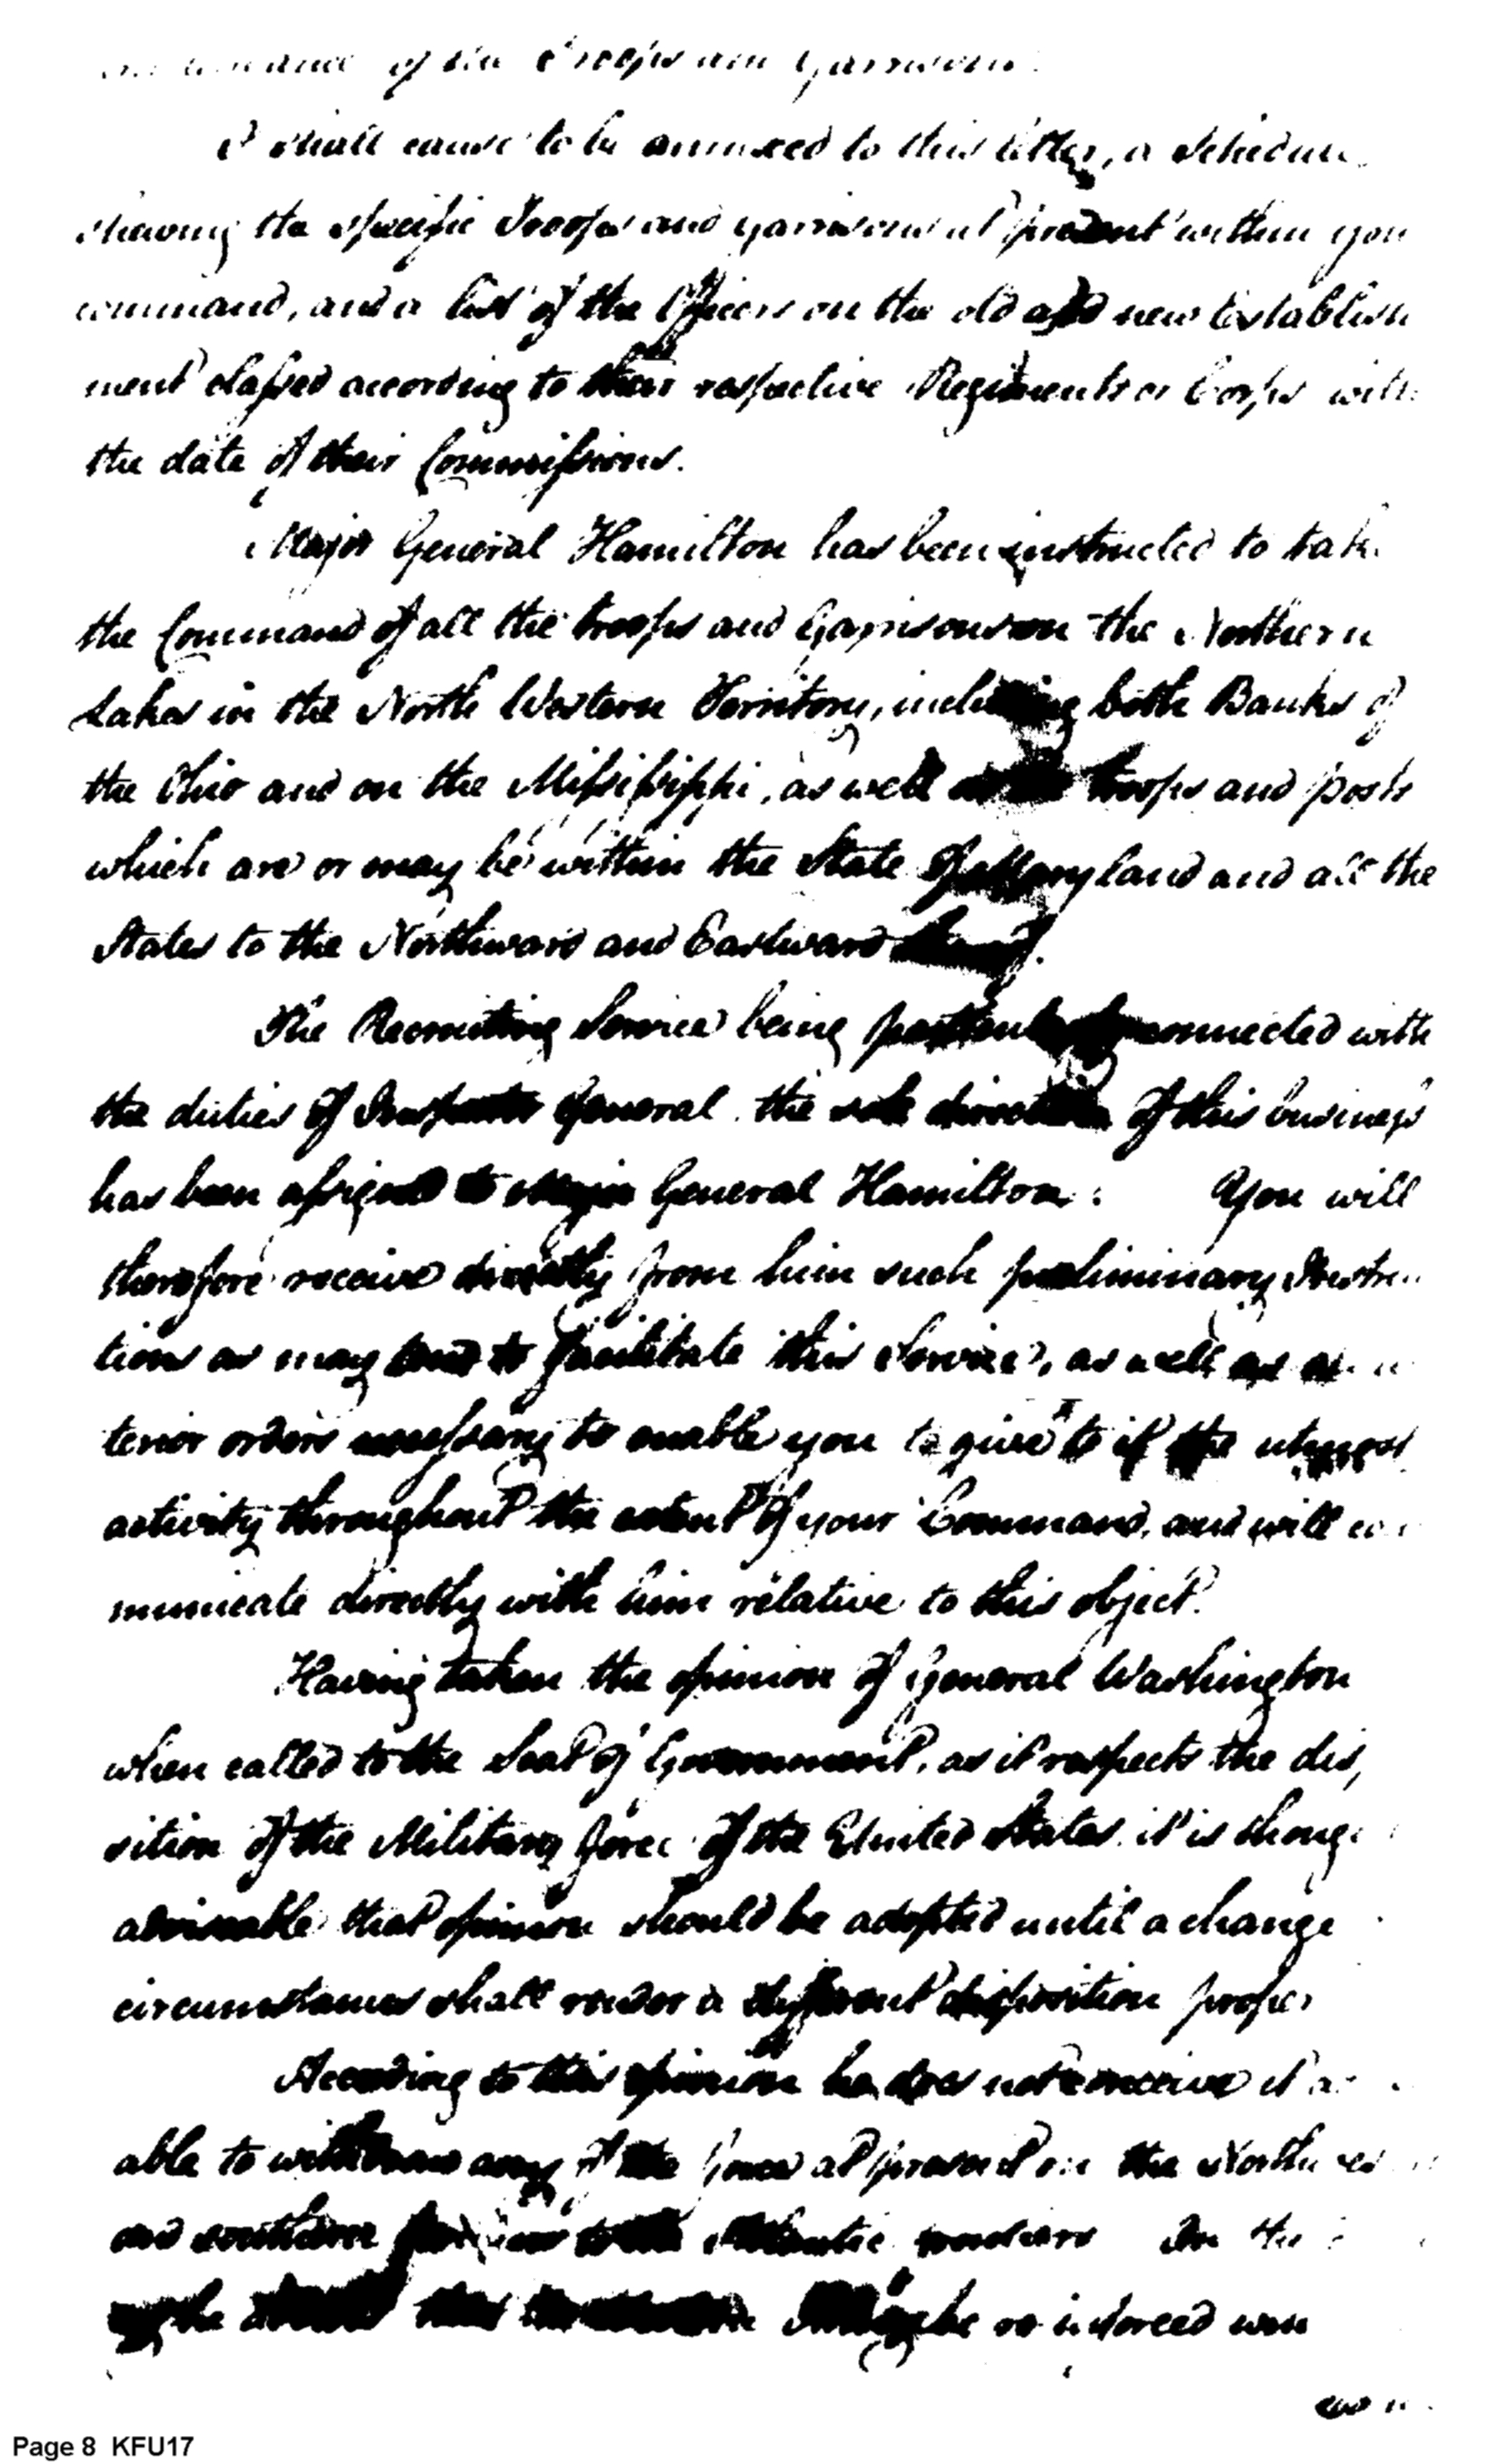 of the Troops and Garrisons.
I shall cause to be annexed to this letter, a Schedule
shewing the specific Troops and garrisons at present within your
command, and a list of the Officers on the old and new Establish
ment classed according to their respective Regiments or Corps with
the date of their Commissions.
Major General Hamilton has been instructed to take
the Command of all the troops and Garrisons on the Northern
Lakes in the North Western Territory, including both Banks of
the Ohio and on the Missisippi, as well as the troops and posts
which are or may be within the State of Maryland and all the
States to the Northward and Eastward thereof.
The Recruiting Service being particularly connected with
the duties of Inspector General the sole direction of this business
has been assigned to Major General Hamilton: You will
therefore receive directly from him such preliminary Instruc
tions as may tend to facilitate this Service, as well as
terior orders necessary to enable you to give to it the utmost
activity throughout the extent of your Command, and will com
municate directly with him relative to this object.
Having taken the opinion of General Washington
when called to the Seat of Government, as it respects the dis
sition of the Military force of the United States it is though
adviseable that opinion should be adopted until a change
circumstances shall render a different disposition proper
According to this opinion he does not conceive it
able to withdraw any of the force at present on the North
and southern to the Atlantic In the
be reinforced